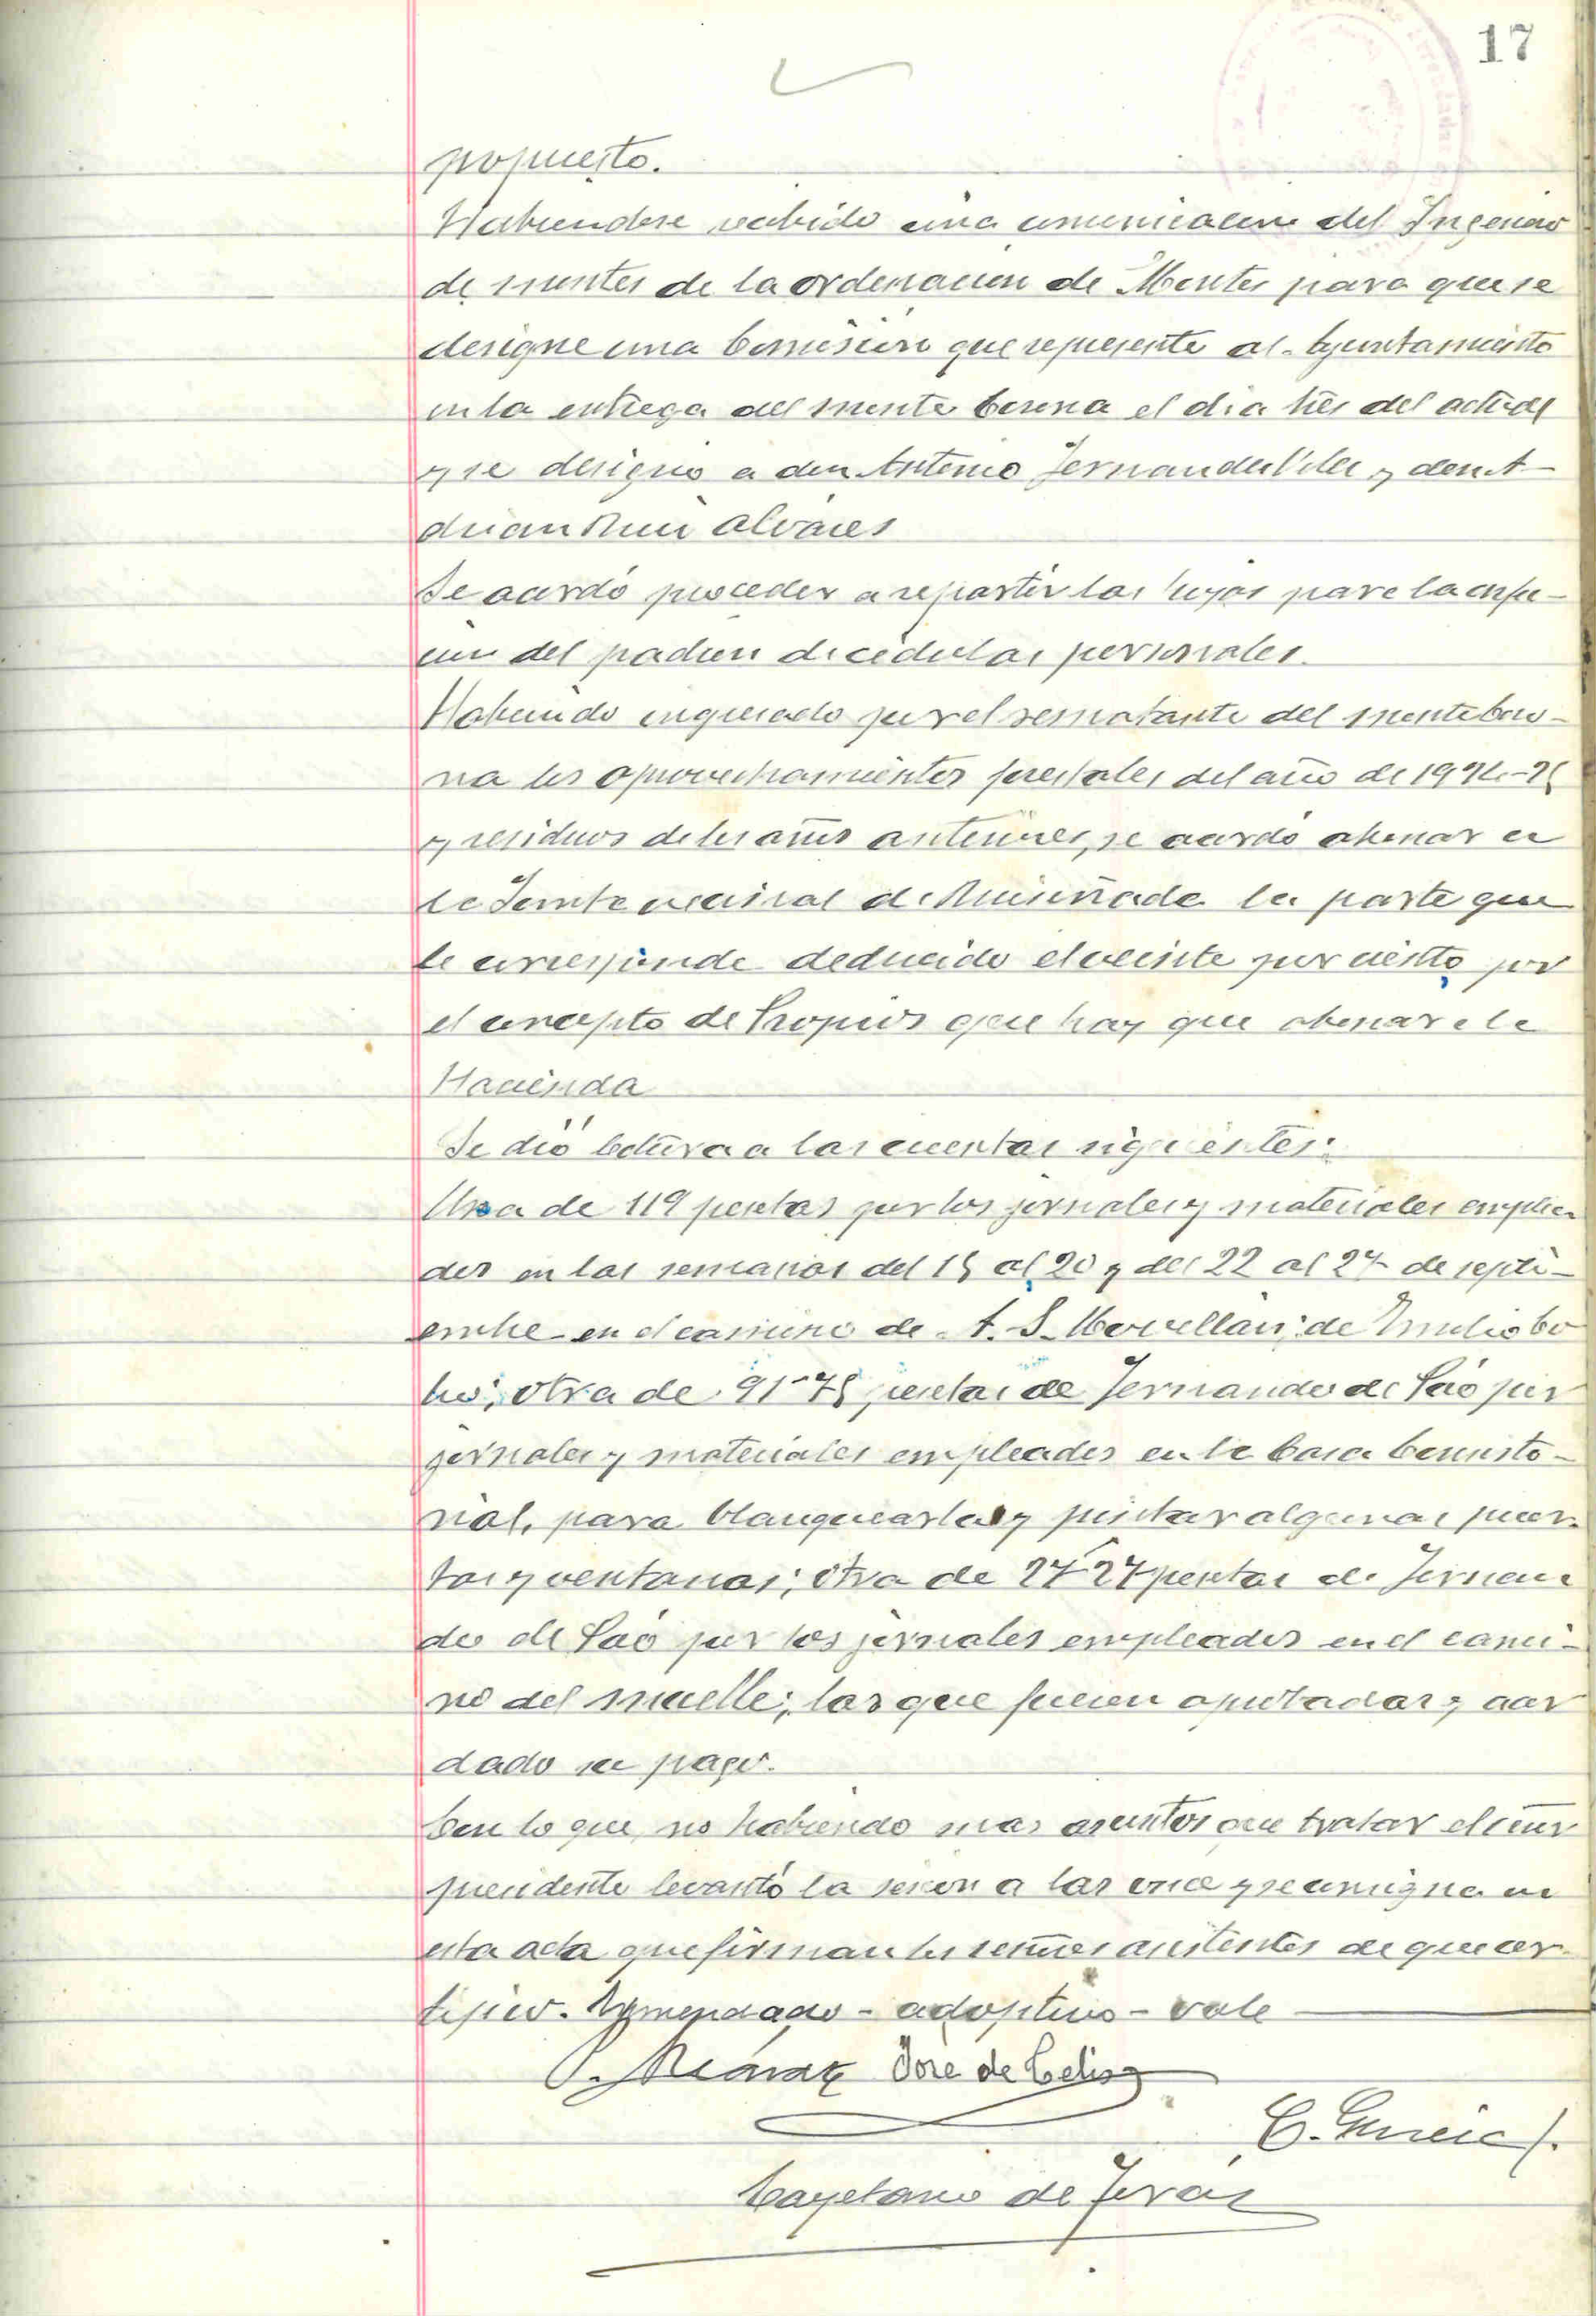 17
propuesto.
Habiendose recibido una comunicacion del Ingeniero
de montes de la ordenacion de Montes para que se
designe una Comision que represente al Ayuntamiento
en la entrega del monte Corona el dia tres del actual
y se designó a don Antonio Fernandez Vila y don A-
drian Ruiz Alvarez
Se acordó proceder a repartir las hojas para la confec-
cion del padron de cedulas personales.
Habiendo ingresado por el rematante del monte Coro-
na los aprovechamientos forestales del año de 1924-25
y residuos de los años anteriores, se acordó abonar a
la Junta vecinal de Ruiseñada la parte que
le corresponde deducido el veinte por ciento por
el concepto de Propios que hay que abonar a la
Hacienda
Se dió lectura a las cuentas siguientes:
Una de 119 pesetas por los jornales y materiales emplea
dos en las semanas del 15 al 20 y del 22 al 27 de septi-
embre en el camino de A. S. Movellán; de Emilio Co
bo; otra de 91-75 pesetas de Fernando de Saó por
jornales y materiales empleados en la Casa Consisto-
rial, para blanquearla y pintar algunas puer-
tas y ventanas; otra de 27-27 pesetas de Fernan
do de Saó por los jornales empleados en el cami-
no del muelle; las que fueron aprobadas y acor
dado su pago.
Con lo que, no habiendo mas asuntos que tratar el señor
presidente levantó la sesion a las once y se consigna en
esta acta que firman los señores asistentes de que cer-
tifico. Enmendado - adoptivo - vale
José de Celis
C. Garcia
Cayetano de Terán